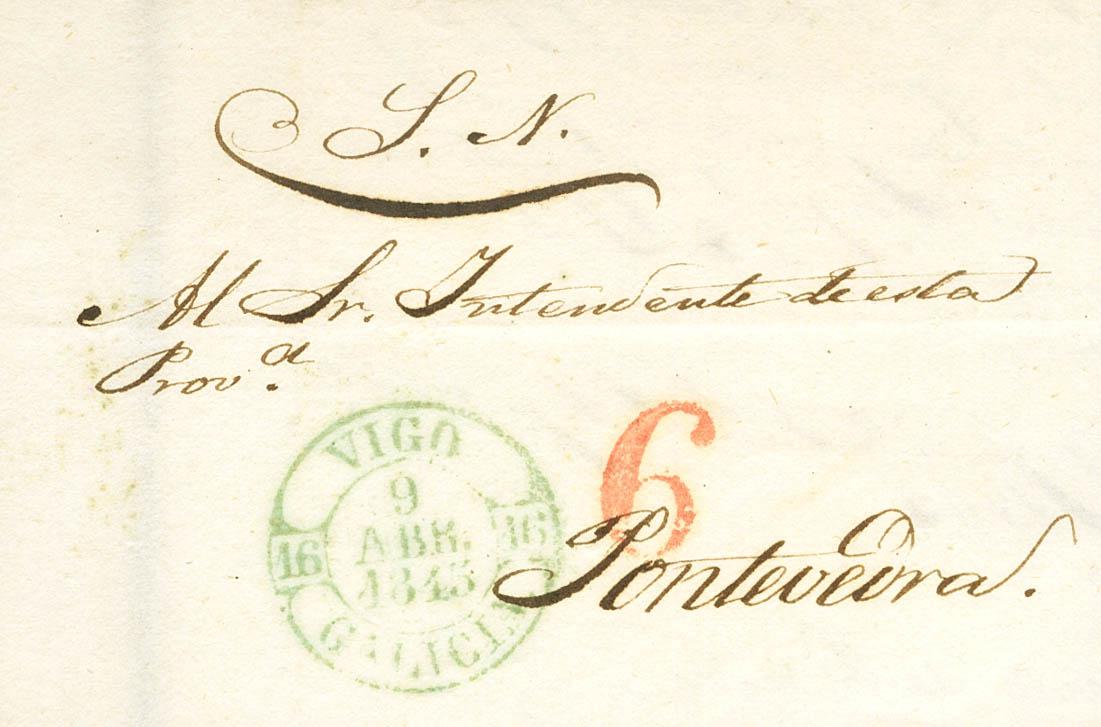 S. N.
Al Sr. Intendente de esta
Prov.d
VIGO
9
ABR.
1845
16 16
GALICIA
6
Pontevedra.